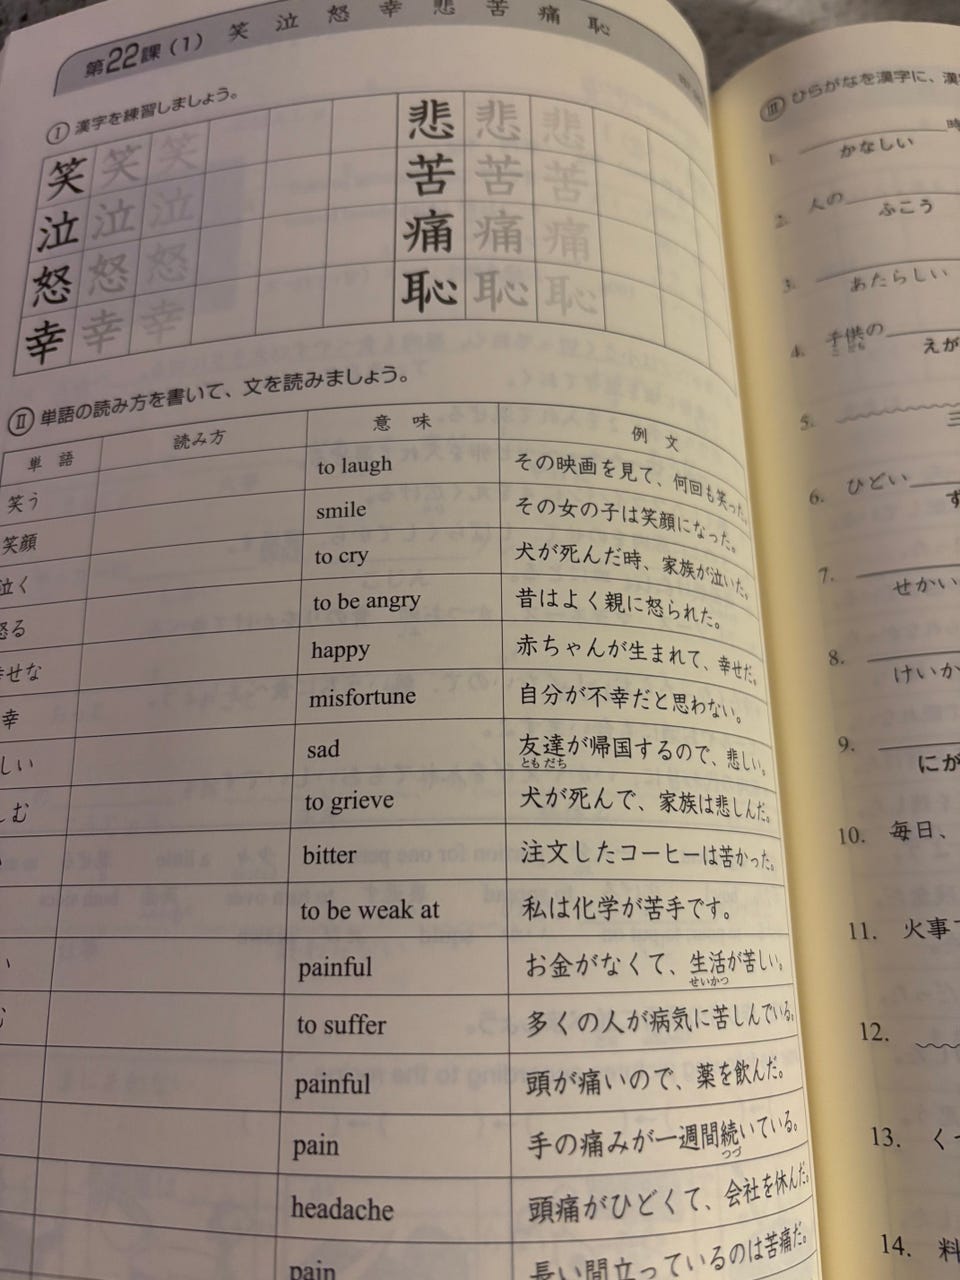 第22課(1) 笑 泣 怒 幸 悲 苦 痛 恥
Ⅰ 漢字を練習しましょう。
笑 笑 笑 悲 悲 悲
泣 泣 泣 苦 苦 苦
怒 怒 怒 痛 痛 痛
幸 幸 幸 恥 恥 恥
Ⅱ 単語の読み方を書いて、文を読みましょう。
単語 読み方 意味 例文
笑う to laugh その映画を見て、何回も笑った。
笑顔 smile その女の子は笑顔になった。
泣く to cry 犬が死んだ時、家族が泣いた。
怒る to be angry 昔はよく親に怒られた。
せな happy 赤ちゃんが生まれて、幸せだ。
幸 misfortune 自分が不幸だと思わない。
しい sad 友達が帰国するので、悲しい。
ともだち
しむ to grieve 犬が死んで、家族は悲しんだ。
bitter 注文したコーヒーは苦かった。
to be weak at 私は化学が苦手です。
い painful お金がなくて、生活が苦しい。
せいかつ
む to suffer 多くの人が病気に苦しんでいる。
painful 頭が痛いので、薬を飲んだ。
pain 手の痛みが一週間続いている。
つづ
headache 頭痛がひどくて、会社を休んだ。
pain 長い間立っているのは苦痛だ。
Ⅲ ひらがなを漢字に、漢
1. 時
かなしい
2. 人の
ふこう
3.
あたらしい
4. 子供の
こども えが
5.
三
6. ひどい
ず
7.
せかい
8.
けいか
9.
にが
10. 毎日、
11. 火事で
12.
13. くつ
14. 料